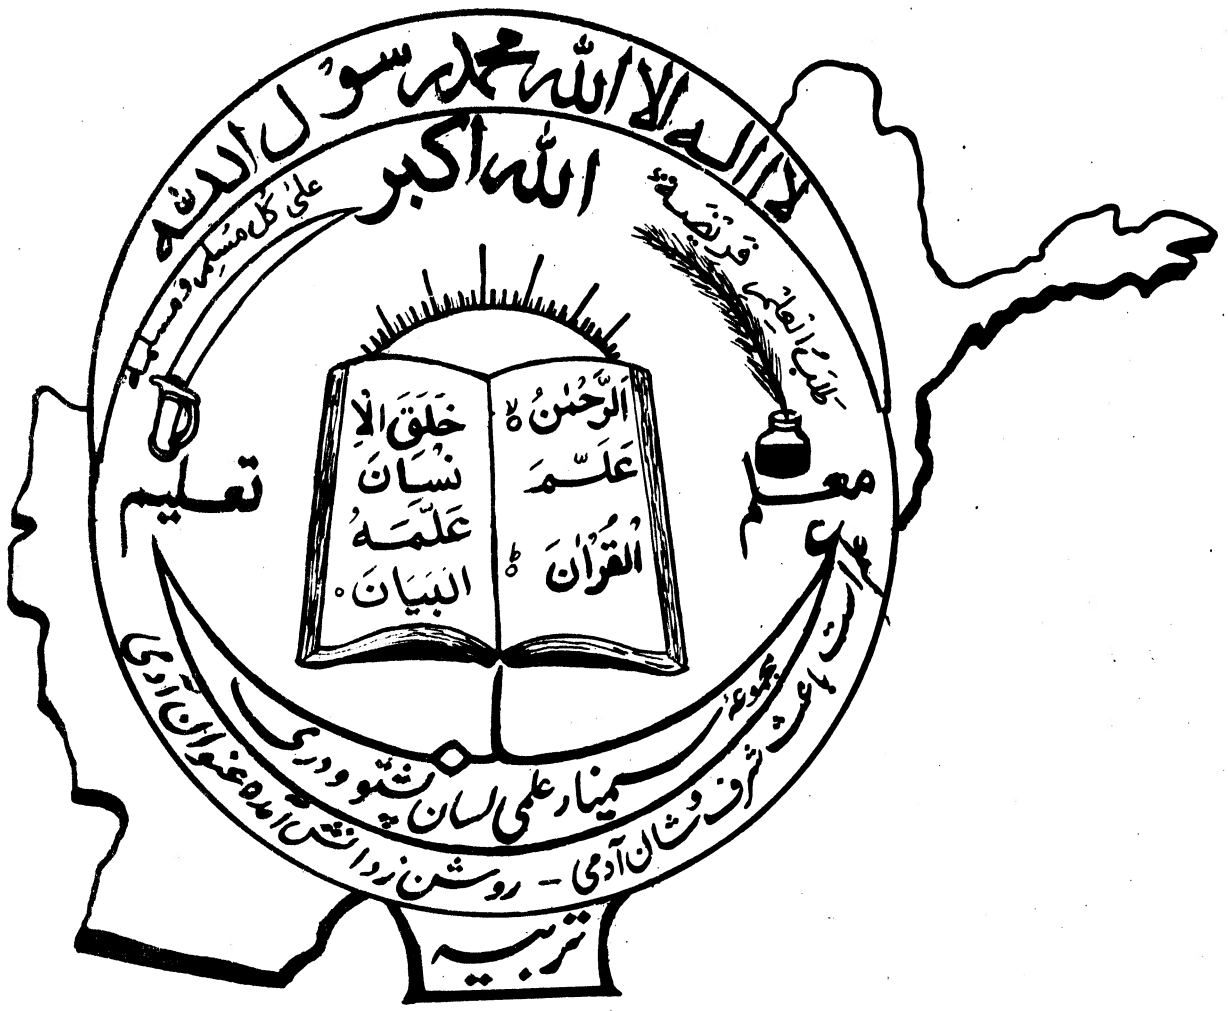 لا اله الا الله محمد رسول الله
الله اکبر
طَلَبُ العِلمِ فَرِيضَةٌ
عَلىٰ كُلِ مُسلِمٍ و مُسلِمة
اَلرَّحْمٰنُ ۙ
عَلَّمَ
الْقُرْاٰنَ ؕ
خَلَقَ الْاِ
نْسَانَ
عَلَّمَهُ
الْبَيَانَ ○
معلم
تعلیم
مجموعهٔ
سمینار علمی لسان پشتو و دری
علمست باعث شرف و شان آدمی - روشن ز دانش آمده عنوان آدمی
تربیه